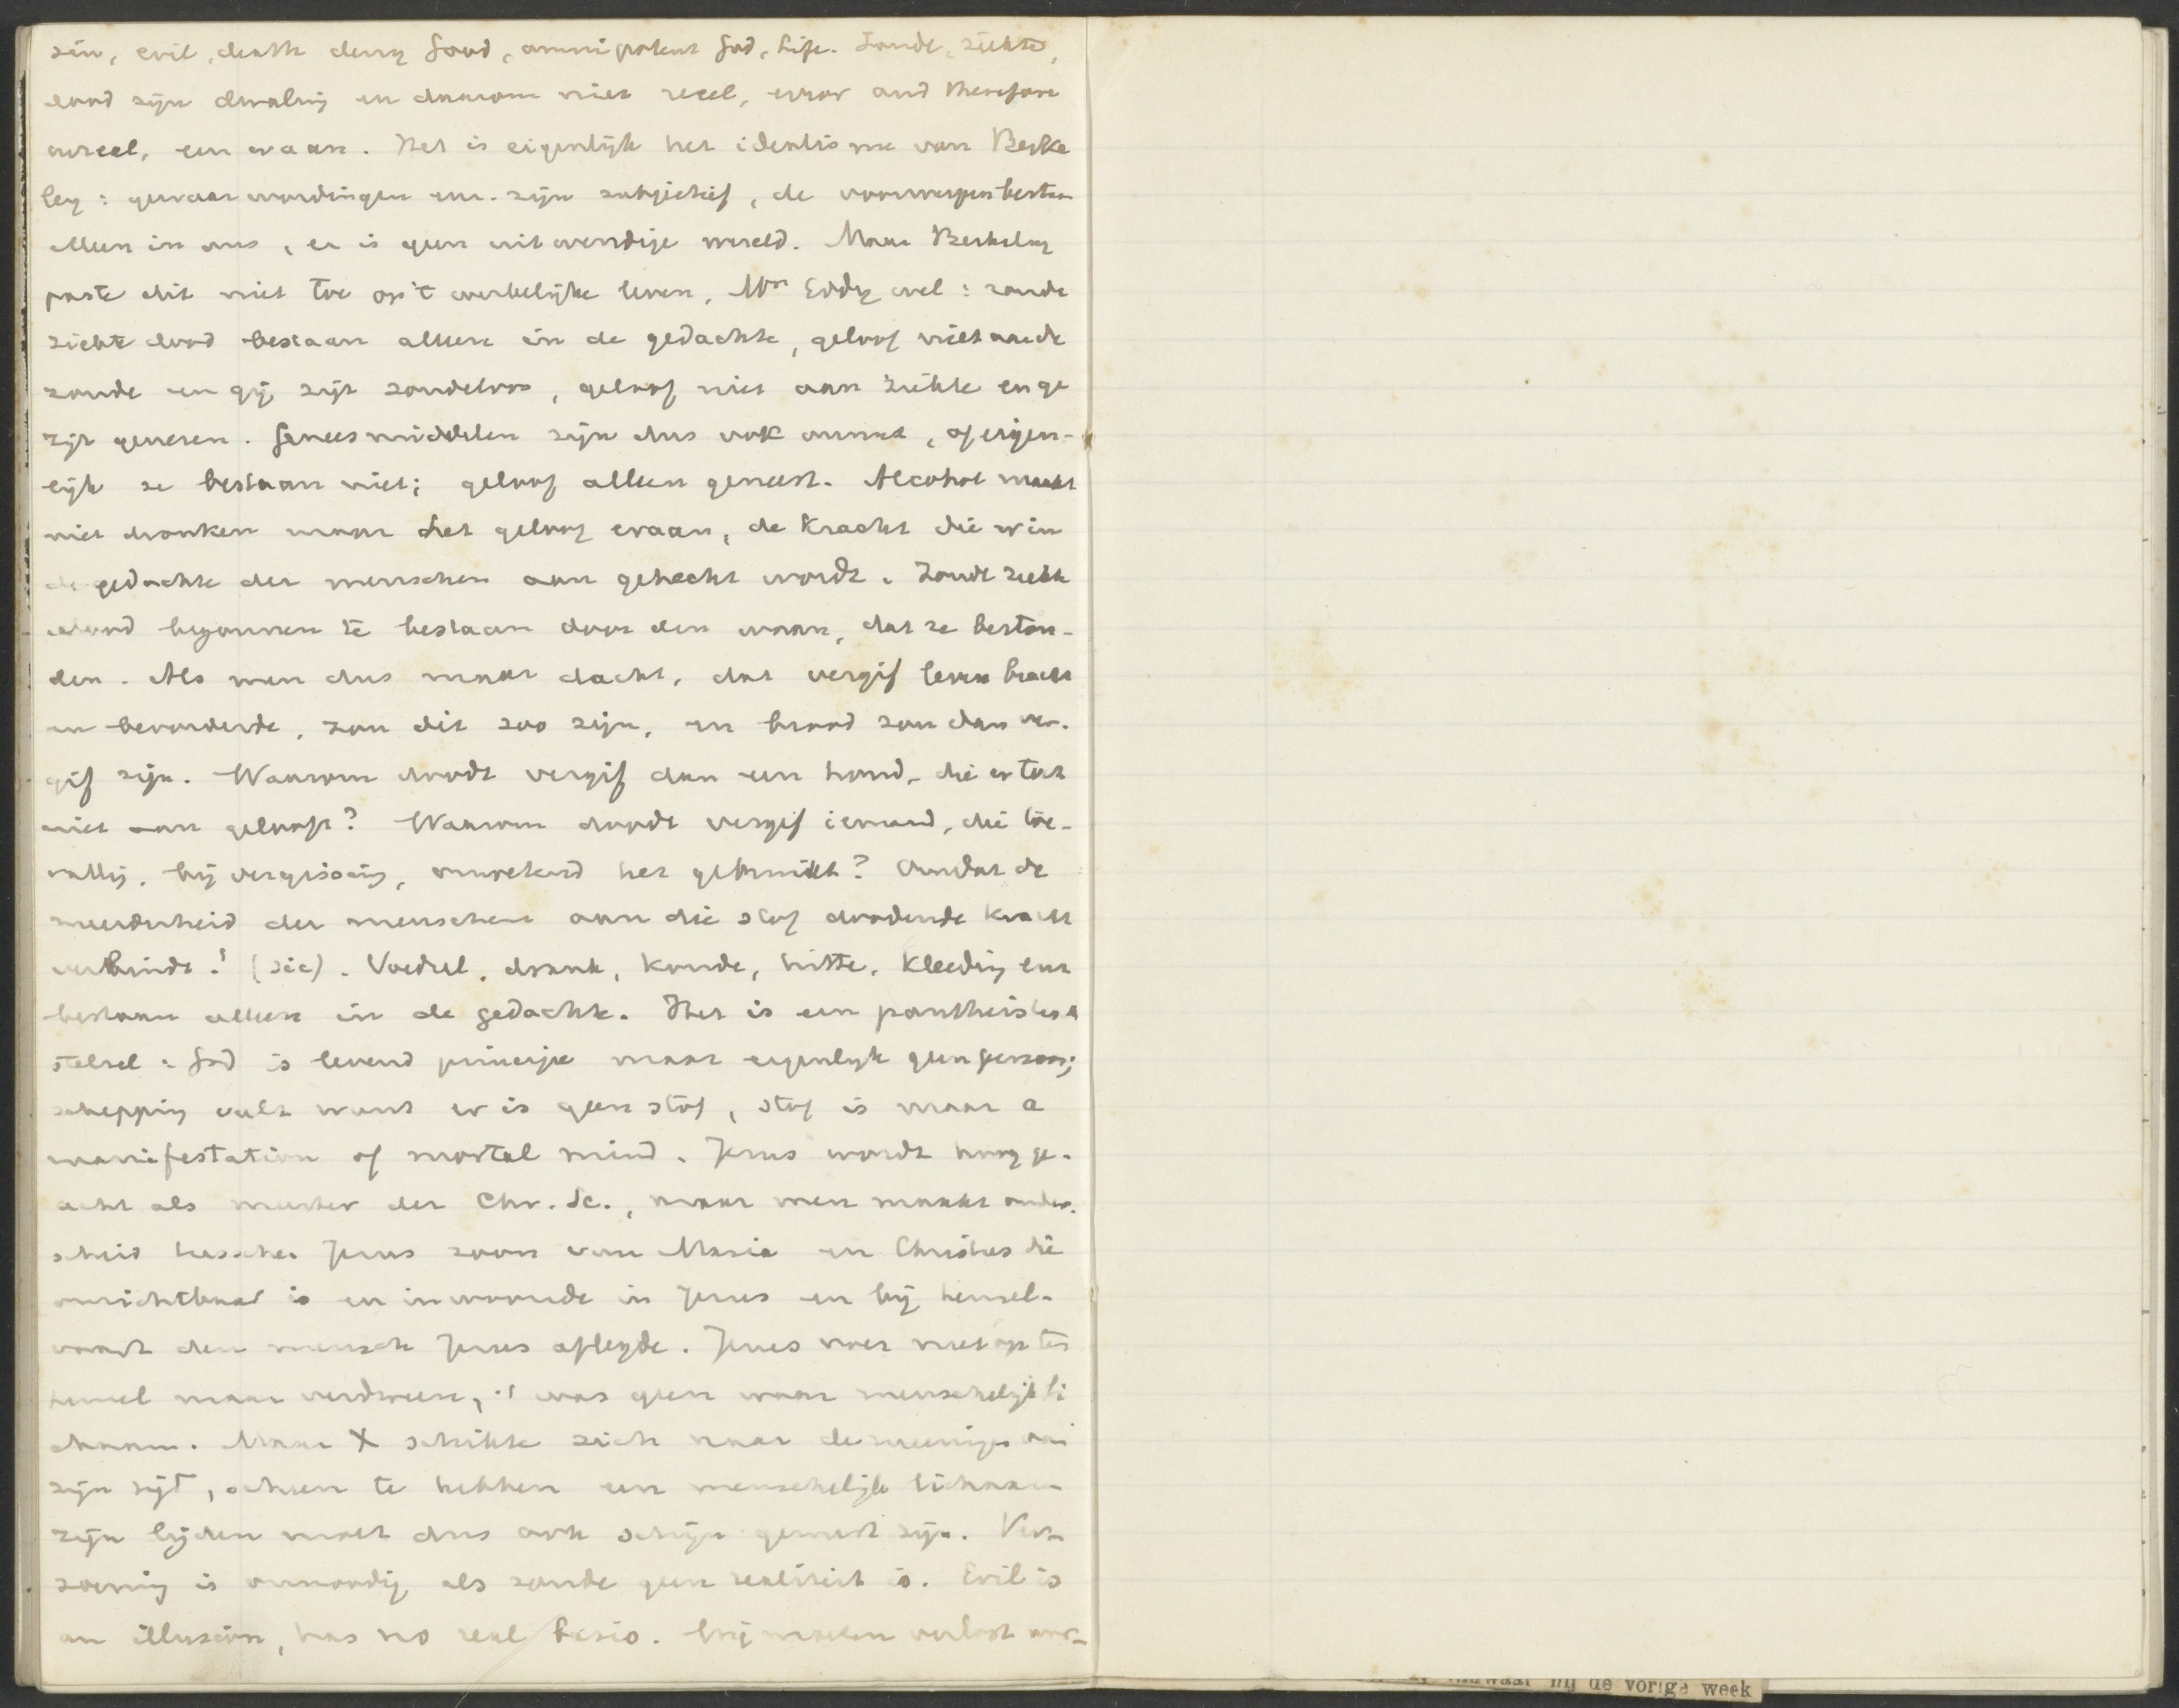 sin, evil, death deny Good, omnipotent God, Life. Zonde, ziekte,
dood zijn dwaling en daarom niet reeel, error and therefore
unreel, een waan. Het is eigenlijk het idealisme van Berke
ley: gewaarwordingen enz. zijn subjectief, de voorwerpen bestaan
alleen in ons, er is geen uitwendige wereld. Maar Berkeley
paste dit niet toe op 't werkelijke leven, Mrs Eddy wel: zonde
ziekte dood bestaan alleen in de gedachte, geloof niet aan de
zonde en gij zijt zondeloos, geloof niet aan ziekte en ge
zijt genezen. Geneesmiddelen zijn dus ook onnut, of eigen-
lijk ze bestaan niet; geloof alleen geneest. Alcohol maakt
niet dronken maar het geloof eraan, de kracht die er in
de gedachte der menschen aan gehecht wordt. Zonde ziekte
dood begonnen te bestaan door den waan, dat ze beston-
den. Als men dus maar dacht, dat vergif leven bracht
en bevorderde, zou dit zoo zijn, en brood zou dan ver-
gif zijn. Waarom doodt vergif dan een hond, die er toch
niet aan gelooft? Waarom doodt vergif iemand, die toe-
vallig, bij vergissing, onwetend het gebruikt? Omdat de
meerderheid der menschen aan die stof doodende kracht
verbindt! (sic). Voedsel, drank, koude, hitte, kleeding enz
bestaan alleen in de gedachte. Het is een pantheistisch
stelsel: God is levend principe maar eigenlijk geen persoon;
schepping valt want er is geen stof, stof is maar a
manifestation of mortal mind. Jezus wordt hoog ge-
acht als meester der Chr. Sc., maar men maakt onder-
scheid tusschen Jezus zoon van Maria en Christus die
onzichtbaar is en inwoonde in Jezus en bij hemel-
vaart den mensch Jezus aflegde. Jezus voer niet op ten
hemel maar verdween, 't was geen waar menschelijk li
chaam. Maar X schikte zich naar de meeningen van
zijn tijd, scheen te hebben een menschelijk lichaam
zijn lijden moet dus ook schijn geweest zijn. Ver-
zoening is onnoodig als zonde geen realiteit is. Evil is
an illusion, has no real basis. Wij moeten verlost wor-
bij de vorige week